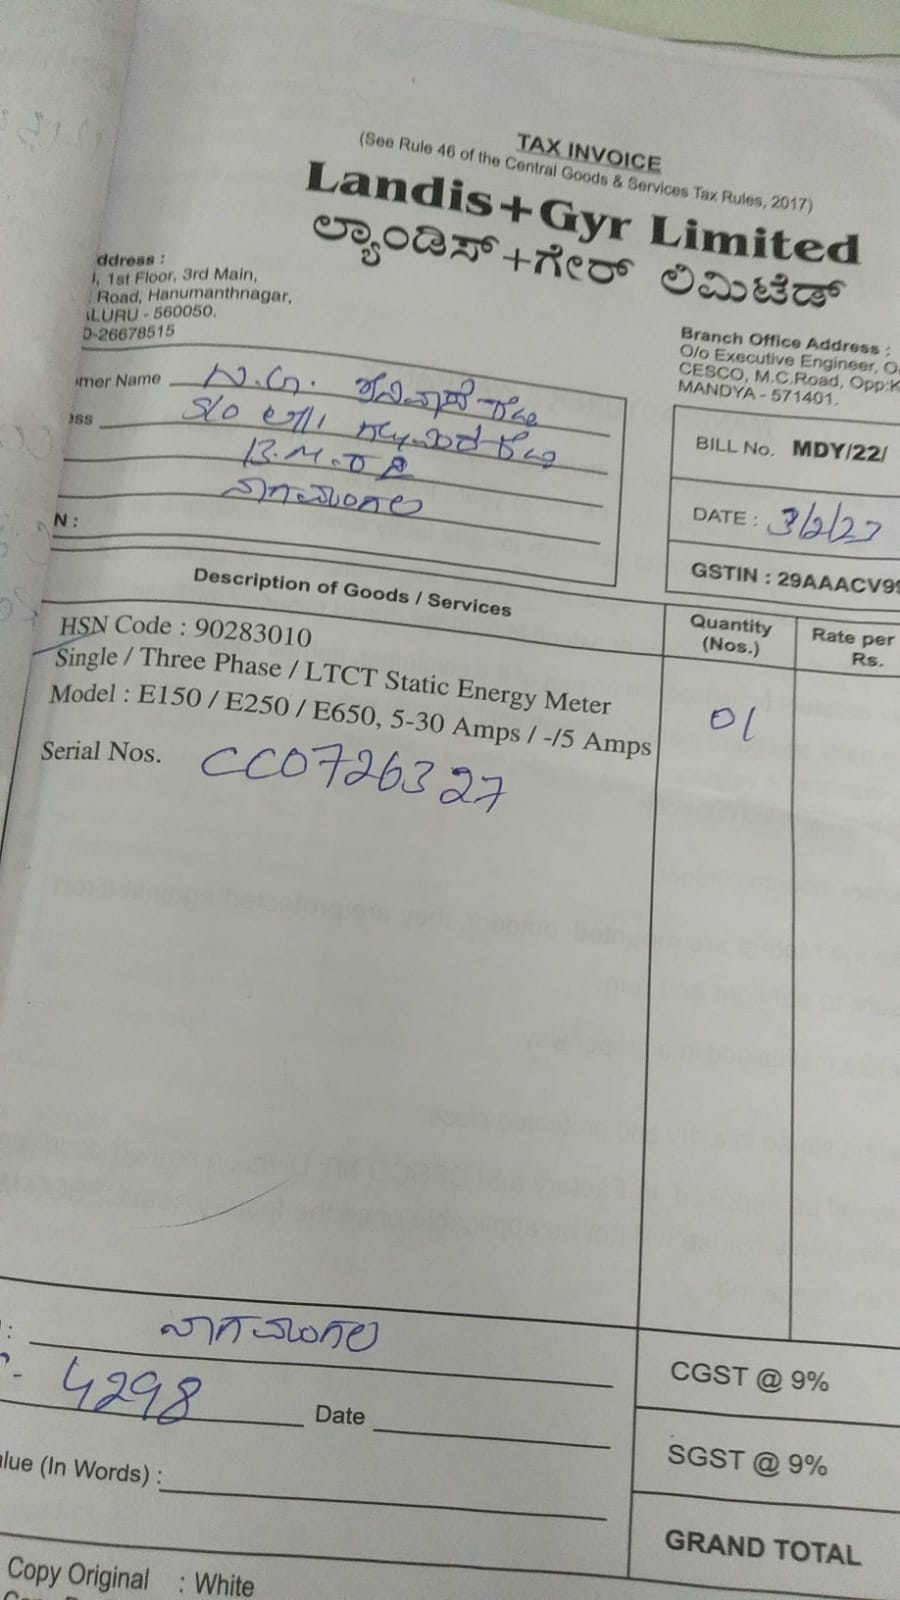 TAX INVOICE
(See Rule 46 of the Central Goods & Services Tax Rules, 2017)
Landis+Gyr Limited
ಲ್ಯಾಂಡಿಸ್+ಗೇರ್ ಲಿಮಿಟೆಡ್
ddress :
, 1st Floor, 3rd Main,
Road, Hanumanthnagar,
ALURU - 560050.
0-26678515
Branch Office Address :
O/o Executive Engineer, O
CESCO, M.C.Road, Opp:K
MANDYA - 571401.
mer Name
ess S/o
ನಾಗಮಂಗಲ
N :
BILL No. MDY/22/
DATE : 3/2/23
GSTIN : 29AAACV99
Description of Goods / Services
Quantity (Nos.)
Rate per Rs.
HSN Code : 90283010
Single / Three Phase / LTCT Static Energy Meter
Model : E150 / E250 / E650, 5-30 Amps / -/5 Amps
01
Serial Nos. CC0726327
: ನಾಗಮಂಗಲ
4298 Date
alue (In Words) :
CGST @ 9%
SGST @ 9%
GRAND TOTAL
Copy Original : White